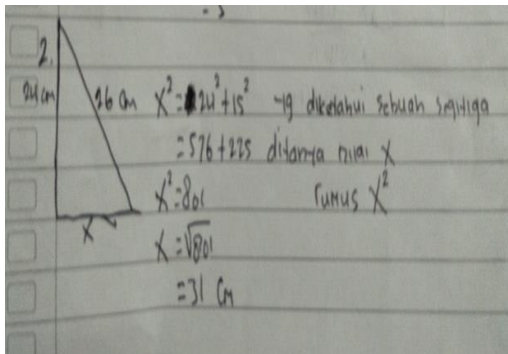 2.
24 cm
26 cm
x
x² = 24² + 15² yg diketahui sebuah segitiga
= 576 + 225 ditanya nilai x
x² = 801 rumus x²
x = √801
= 31 cm